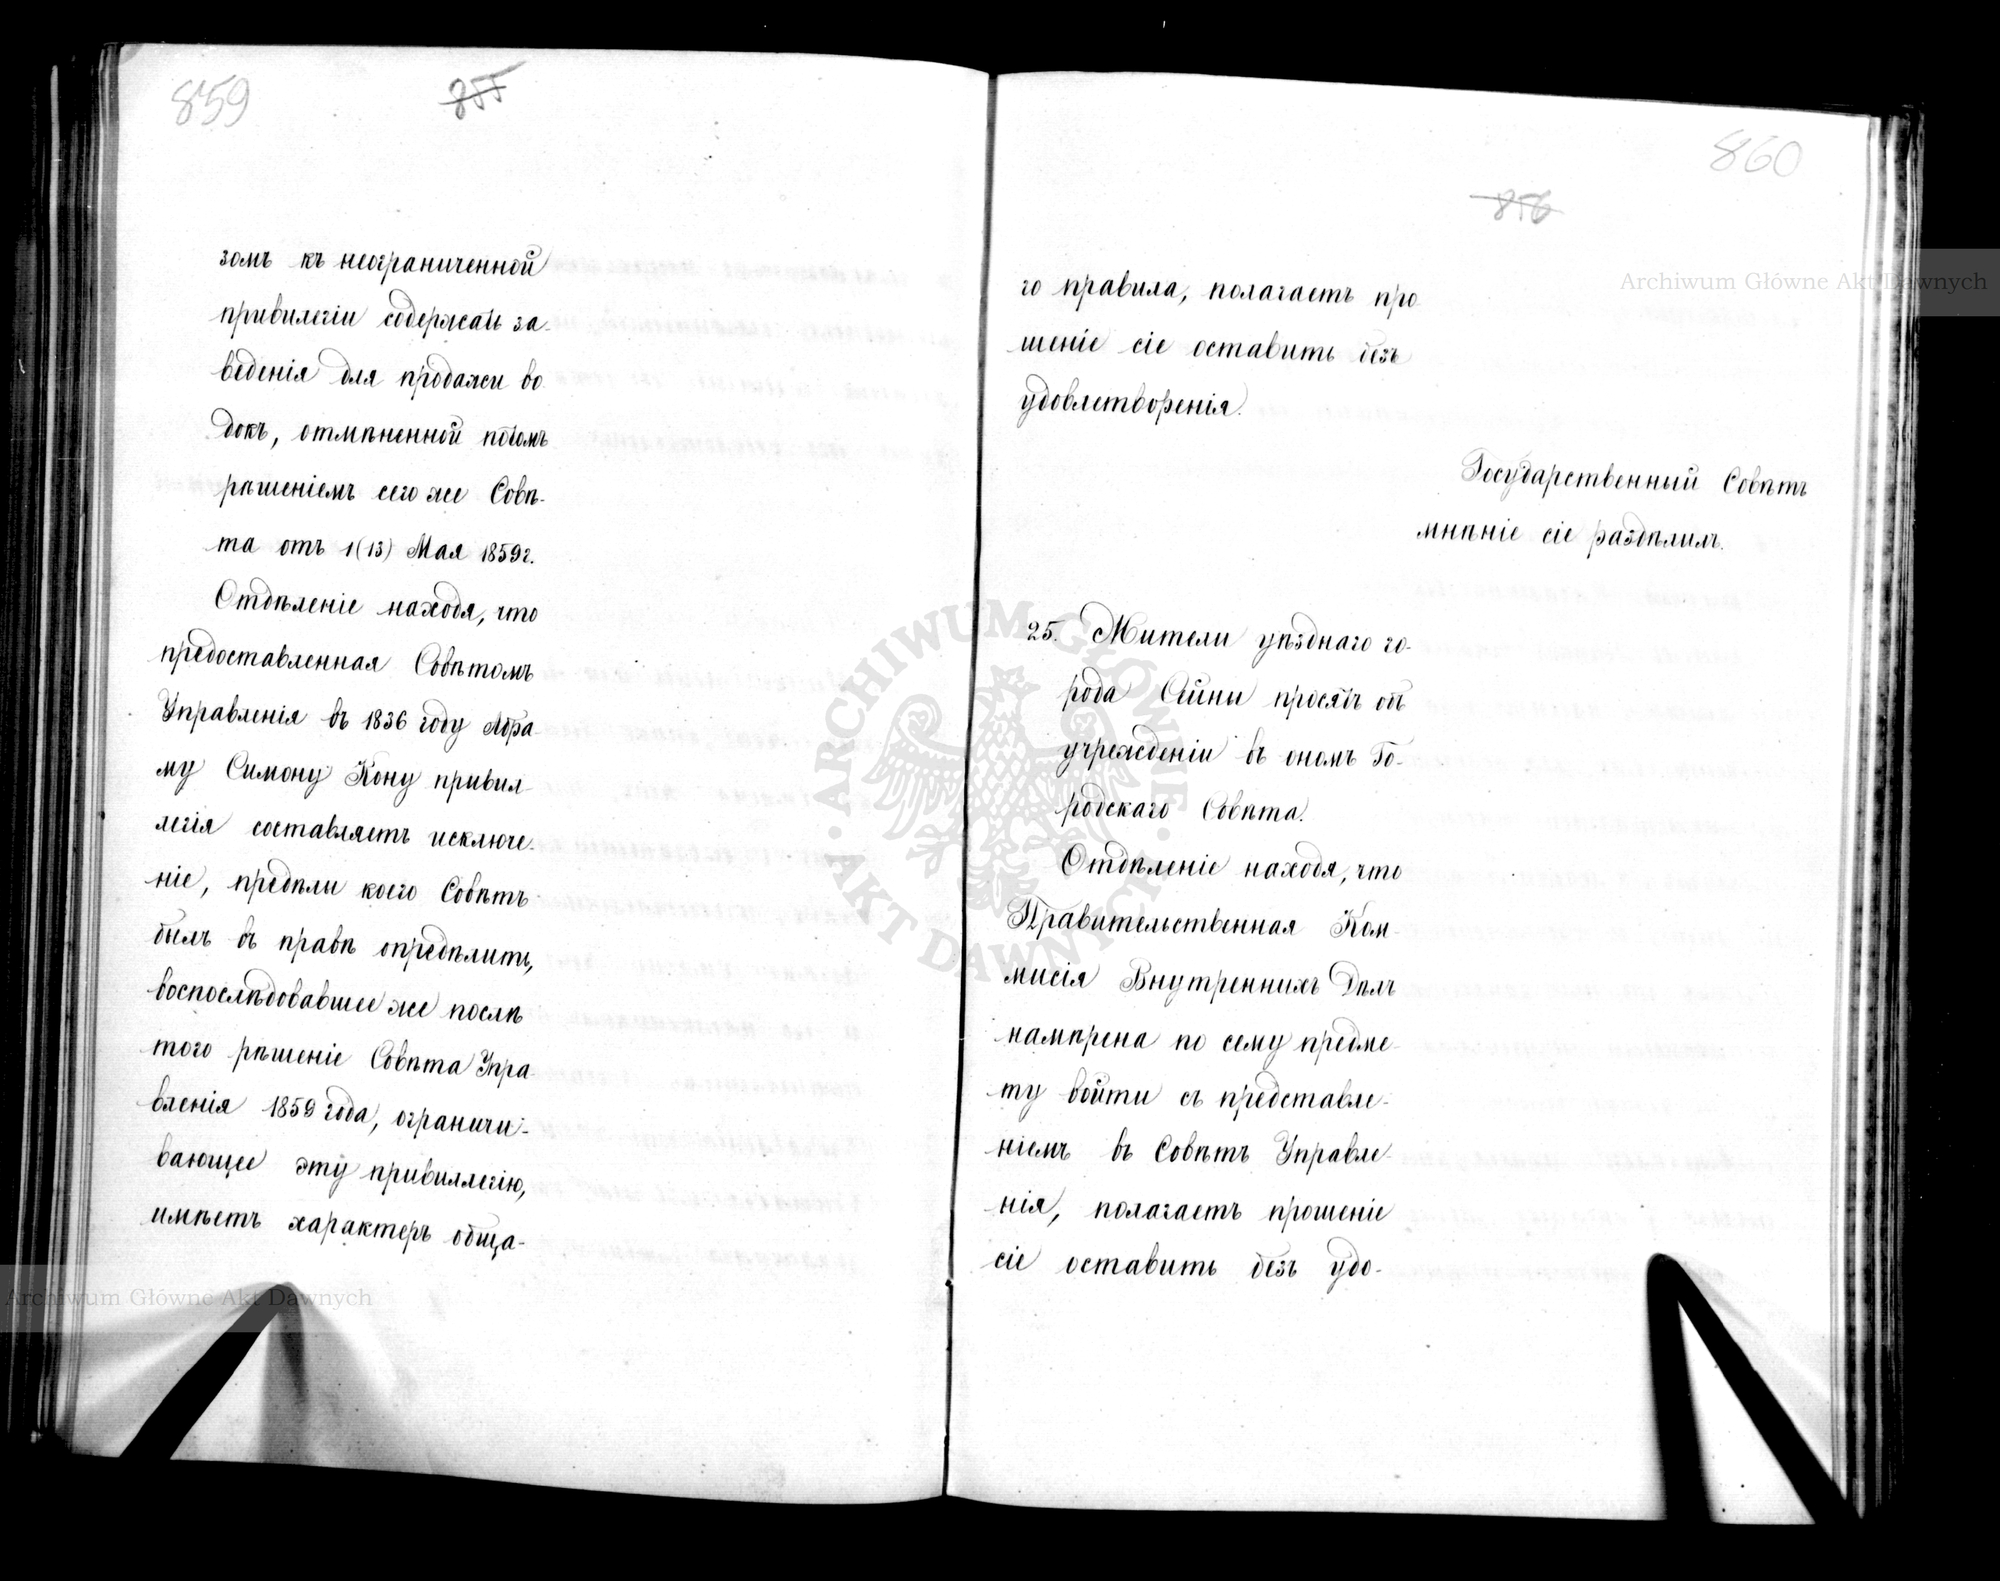 859
855
зомъ къ неограниченной
привилегіи содержать за-
веденія для продажи во
докъ, отмѣненной потомъ
рѣшеніемъ сего же Совѣ-
та отъ 1(13) Мая 1859г.
Отдѣленіе находя, что
предоставленная Совѣтомъ
Управленія въ 1836 году Абра-
му Симону Кону привил-
легія составляетъ исключе-
ніе, предѣлы коего Совѣтъ
былъ въ правѣ опредѣлить,
воспослѣдовавшее же послѣ
того рѣшеніе Совѣта Упра
вленія 1859 года, ограничи-
вающее эту привиллегію,
имѣетъ характеръ обща-
860
856
го правила, полагаетъ про
шеніе сіе оставить безъ
удовлетворенія.
Государственный Совѣтъ
мнѣніе сіе раздѣлилъ.
25. Жители уѣзднаго го-
рода Сейны просятъ объ
учрежденіи въ ономъ Го-
родскаго Совѣта.
Отдѣленіе находя, что
Правительственная Ком-
мисія Внутреннихъ Дѣлъ
намѣрена по сему предме-
ту войти съ представле-
ніемъ въ Совѣтъ Управле-
нія, полагаетъ прошеніе
сіе оставить безъ удо-
Archiwum Główne Akt Dawnych
Archiwum Główne Akt Dawnych
ARCHIWUM GŁÓWNE
AKT DAWNYCH